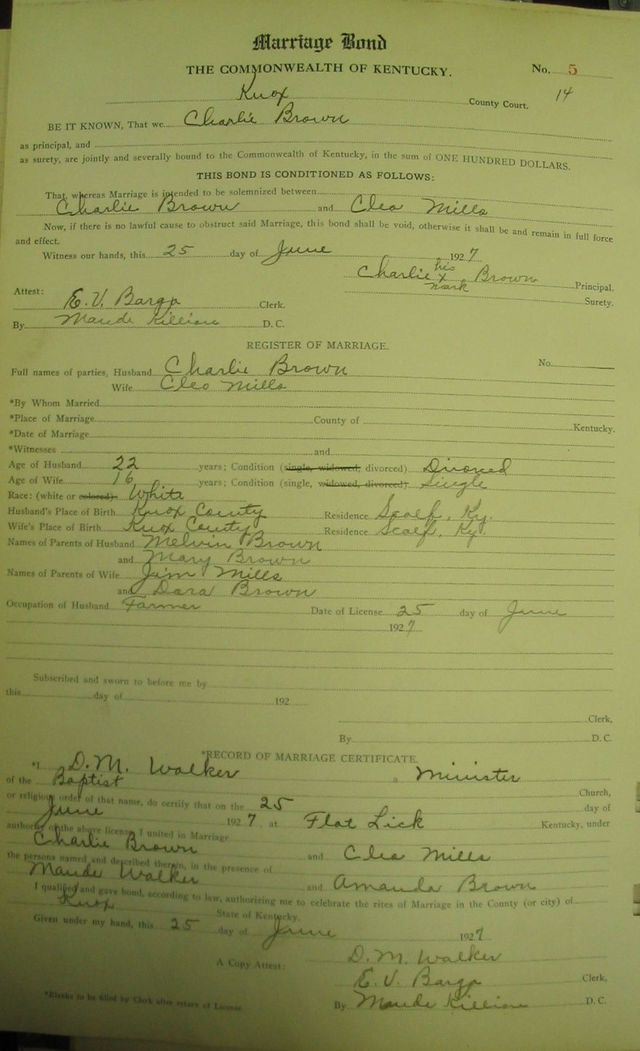 Marriage Bond
THE COMMONWEALTH OF KENTUCKY. No. 5
Knox County Court. 14
BE IT KNOWN, That we Charlie Brown
as principal, and
as surety, are jointly and severally bound to the Commonwealth of Kentucky, in the sum of ONE HUNDRED DOLLARS.
THIS BOND IS CONDITIONED AS FOLLOWS:
That, whereas Marriage is intended to be solemnized between
Charlie Brown and Cleo Mills
Now, if there is no lawful cause to obstruct said Marriage, this bond shall be void, otherwise it shall be and remain in full force
and effect.
Witness our hands, this 25 day of June 1927
Charlie his x mark Brown Principal.
Attest: Surety.
E. V. Barga Clerk.
By Maude Killion D. C.
REGISTER OF MARRIAGE.
Full names of parties, Husband Charlie Brown No.
Wife Cleo Mills
*By Whom Married
*Place of Marriage County of Kentucky.
*Date of Marriage
*Witnesses and
Age of Husband 22 years; Condition (single, widowed, divorced) Divorced
Age of Wife 16 years; Condition (single, widowed, divorced) Single
Race: (white or colored) White
Husband's Place of Birth Knox County Residence Scalf, Ky.
Wife's Place of Birth Knox County Residence Scalf, Ky.
Names of Parents of Husband Melvin Brown
and Mary Brown
Names of Parents of Wife Jim Mills
and Dara Brown
Occupation of Husband Farmer Date of License 25 day of June
1927
Subscribed and sworn to before me by
this day of 192
Clerk,
By D. C.
*RECORD OF MARRIAGE CERTIFICATE.
*I D. M. Walker a Minister
of the Baptist Church,
or religious order of that name, do certify that on the 25 day of
June 1927, at Flat Lick Kentucky, under
authority of the above license, I united in Marriage
Charlie Brown and Cleo Mills
the persons named and described therein, in the presence of
Maude Walker and Amanda Brown
I qualified and gave bond, according to law, authorizing me to celebrate the rites of Marriage in the County (or city) of
Knox State of Kentucky.
Given under my hand, this 25 day of June 1927
D. M. Walker
A Copy Attest: E. V. Barga Clerk,
By Maude Killion D. C.
*Blanks to be filled by Clerk after return of License